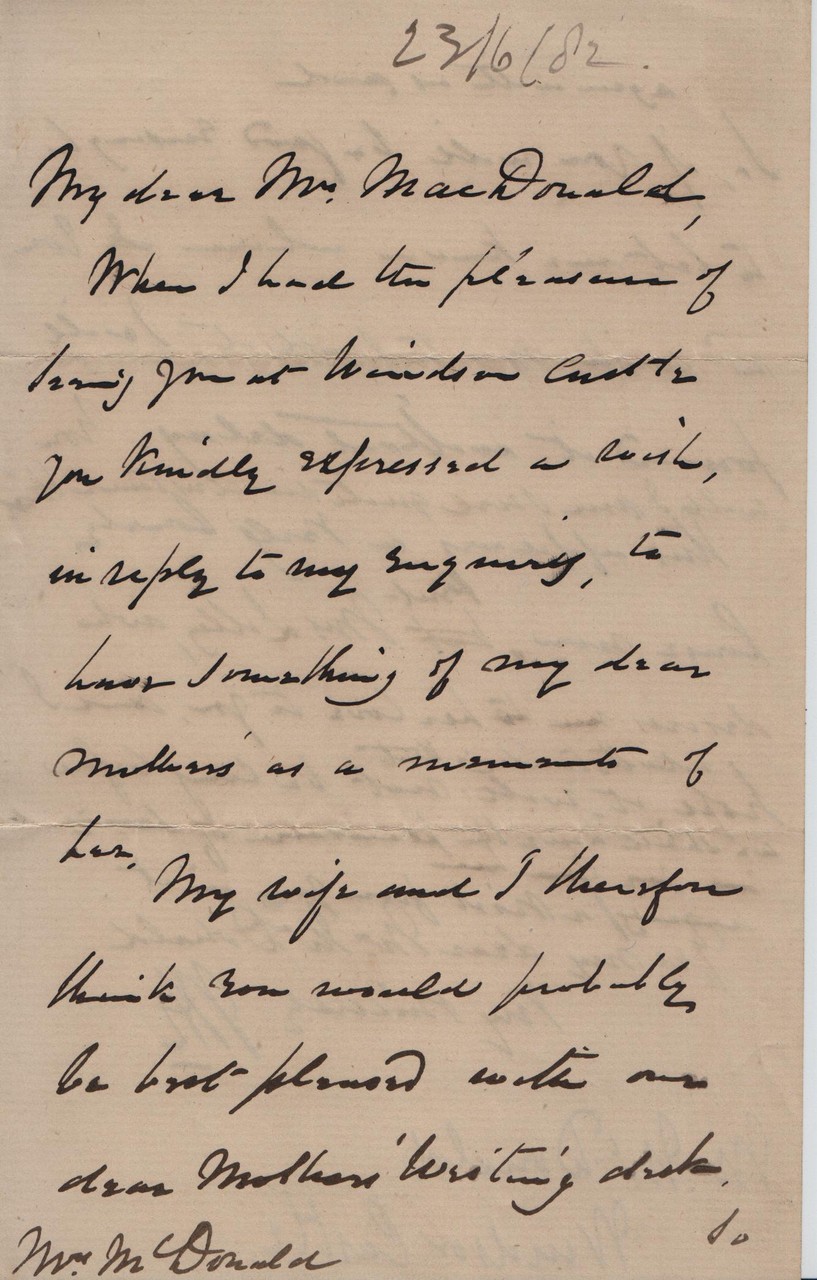 23/6/82.
My dear Mrs. MacDonald,
When I had the pleasure of
seeing you at Windsor Castle
you kindly expressed a wish,
in reply to my enquiry, to
have something of my dear
Mother's as a memento of
her.
My wife and I therefore
think you would probably
be best pleased with our
dear Mother's writing desk.
So
Mrs McDonald